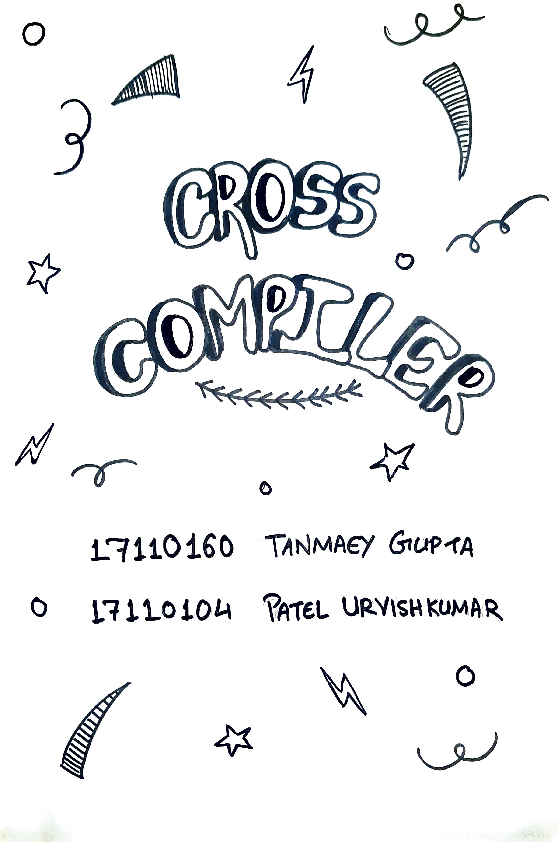 CROSS
COMPILER
17110160 TANMAEY GUPTA
17110104 PATEL URVISHKUMAR